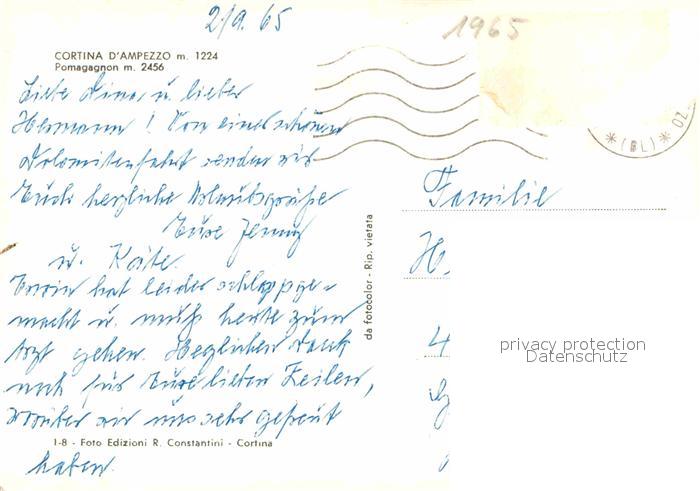 2/9. 65
1965
CORTINA D'AMPEZZO m. 1224
Pomagagnon m. 2456
Liebe Dina u. lieber
Hermann! Von einer schönen
Dolomitenfahrt senden wir
Euch herzliche Urlaubsgrüße
Eure Jenny
u. Käte.
Erwin hat leider schlappge-
macht u. muß heute zum
Arzt gehen. Herzlichen Dank
noch für Eure lieben Zeilen,
worüber wir uns sehr gefreut
I-8 - Foto Edizioni R. Constantini - Cortina
haben.
da fotocolor - Rip. vietata
*(BL)*
Familie
H.
4
privacy protection
Datenschutz